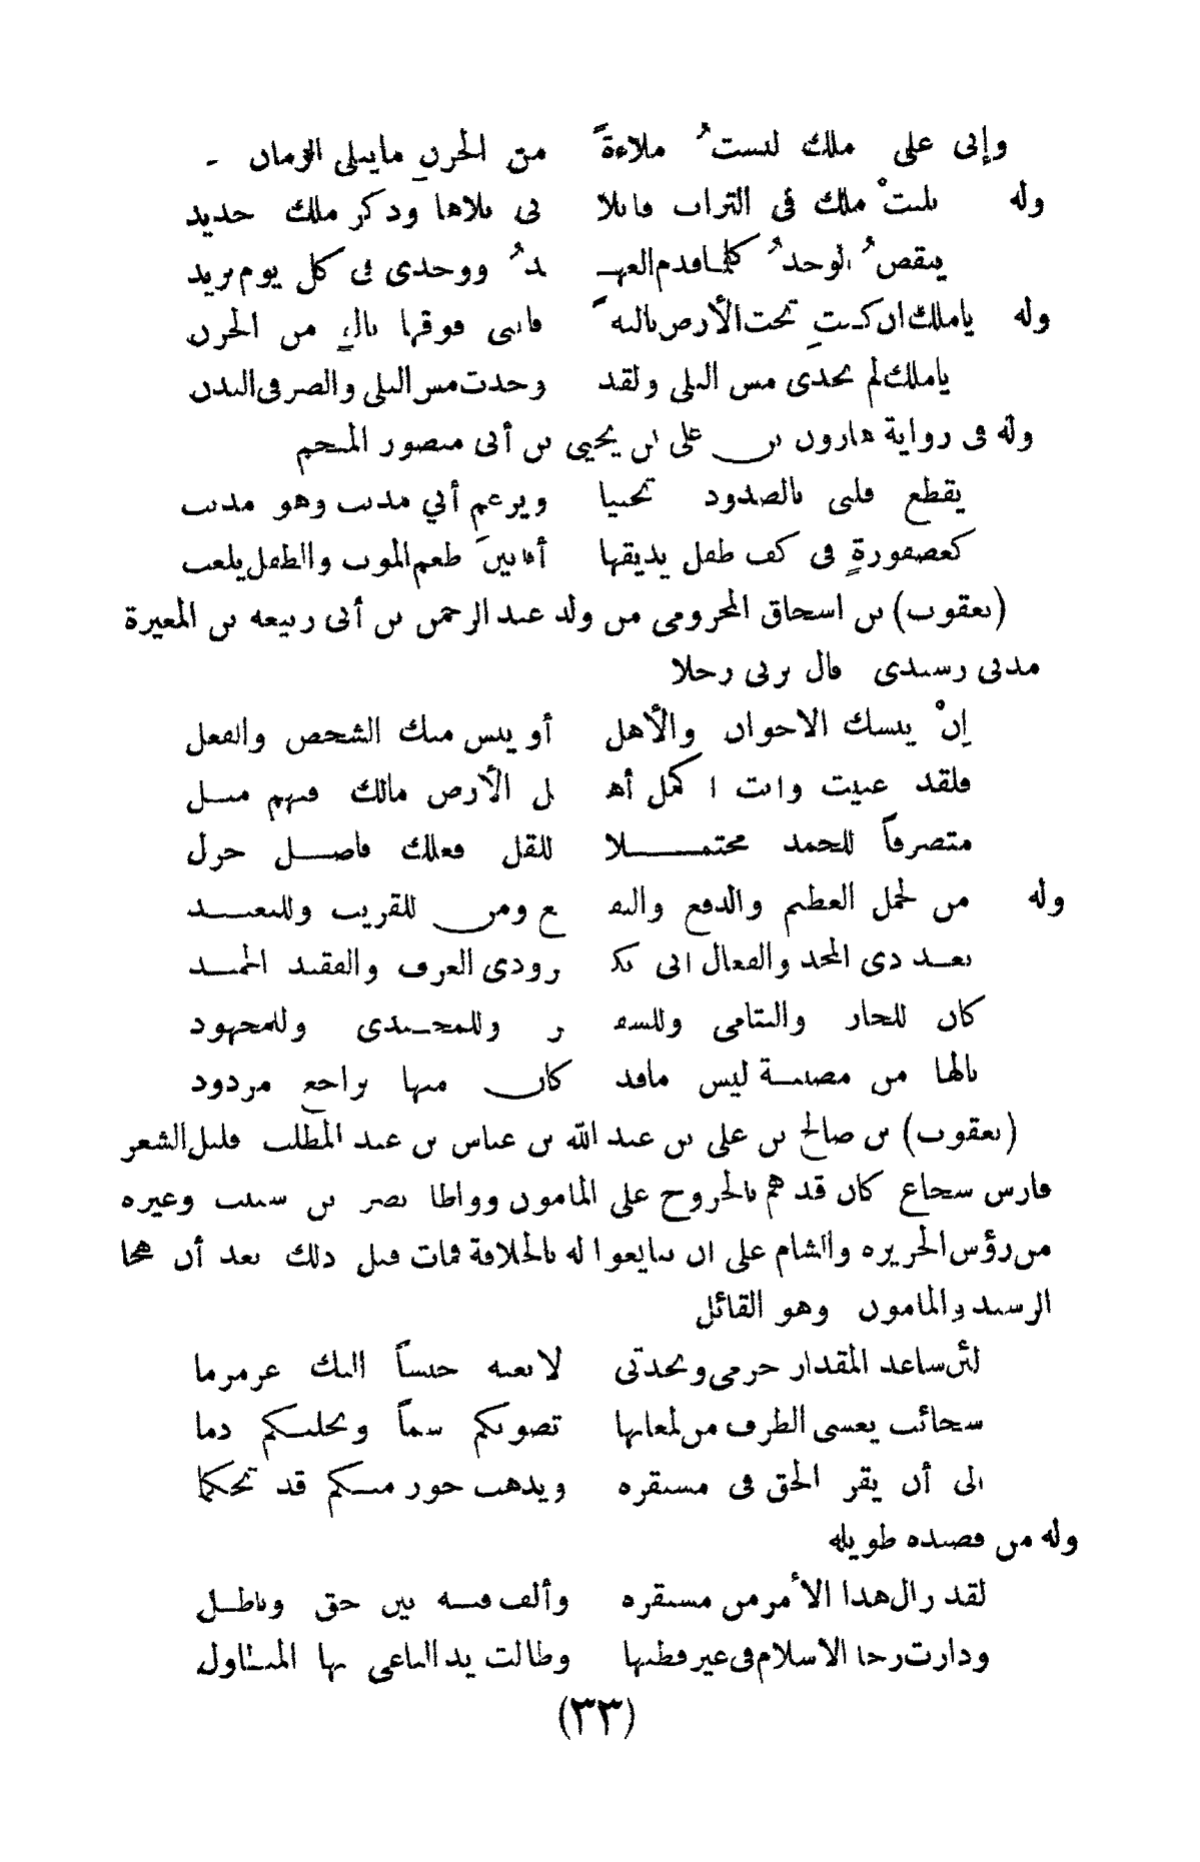 وإنى على ملك لبستُ ملاءةً من الحزنِ مايبلى الزمان -
وله بليتْ ملك فى التراب فابلا نى بلاها وذكر ملك جديد
ينقصُ الوجدُ كلما قدم العهـ ـدُ ووجدى فى كل يوم يزيد
وله ياملك ان كنتِ تحت الأرض باليةً فاننى فوقها بالٍ من الحزن
ياملك لم تجدى مس البلى ولقد وجدت مس البلى والصر فى البدن
وله فى رواية هارون بن على بن يحيى بن أبى منصور المنجم
يقطع قلبى بالصدود تجنيا ويزعم أني مذنب وهو مذنب
كعصفورةٍ فى كف طفل يذيقها أفانينَ طعم الموت والطفل يلعب
(يعقوب) بن اسحاق المخزومى من ولد عبد الرحمن بن أبى ربيعة بن المغيرة
مدنى رشيدى قال يرثى رجلا
إنْ ينسك الاخوان والأهل أو ينس منك الشخص والفعل
فلقد غنيت وانت اكمل أهـ ـل الأرض مالك فيهم مثـل
متصرفاً للحمد محتمـــلا للثقل فعلك فاضـل جزل
وله من لحمل العظيم والدفع والنفـ ـع ومن للقريب وللبعيـد
بعـد ذى المجد والفعال ابى بكـ ـر وذى العرف والفقيد الحميـد
كان للجار واليتامى وللسفـ ـر وللمجـتدى وللمجهود
يالها من مصيبـة ليس ماقد كان منها براجع مردود
(يعقوب) بن صالح بن على بن عبد الله بن عباس بن عبد المطلب قليل الشعر
فارس شجاع كان قد هم بالخروج على المامون وواطا نصر بن شبيب وغيره
من رؤس الجزيره والشام على ان يبايعوا له بالخلافة فمات قبل ذلك بعد أن هجا
الرشيد والمامون وهو القائل
لئن ساعد المقدار حزمى ونجدتى لابعثه جيشاً اليك عرمرما
سحائب يعشى الطرف من لمعانها تصوبكم سماً وتحلبـكم دما
الى أن يقر الحق فى مستقره ويذهب جور منـكم قد تحكما
وله من قصيده طويله
لقد زال هذا الأمر من مستقره وألف فيـه بين حق وباطـل
ودارت رحا الاسلام فى غير قطبها وطالت يد الباغى بها المتناول
(٣٣)